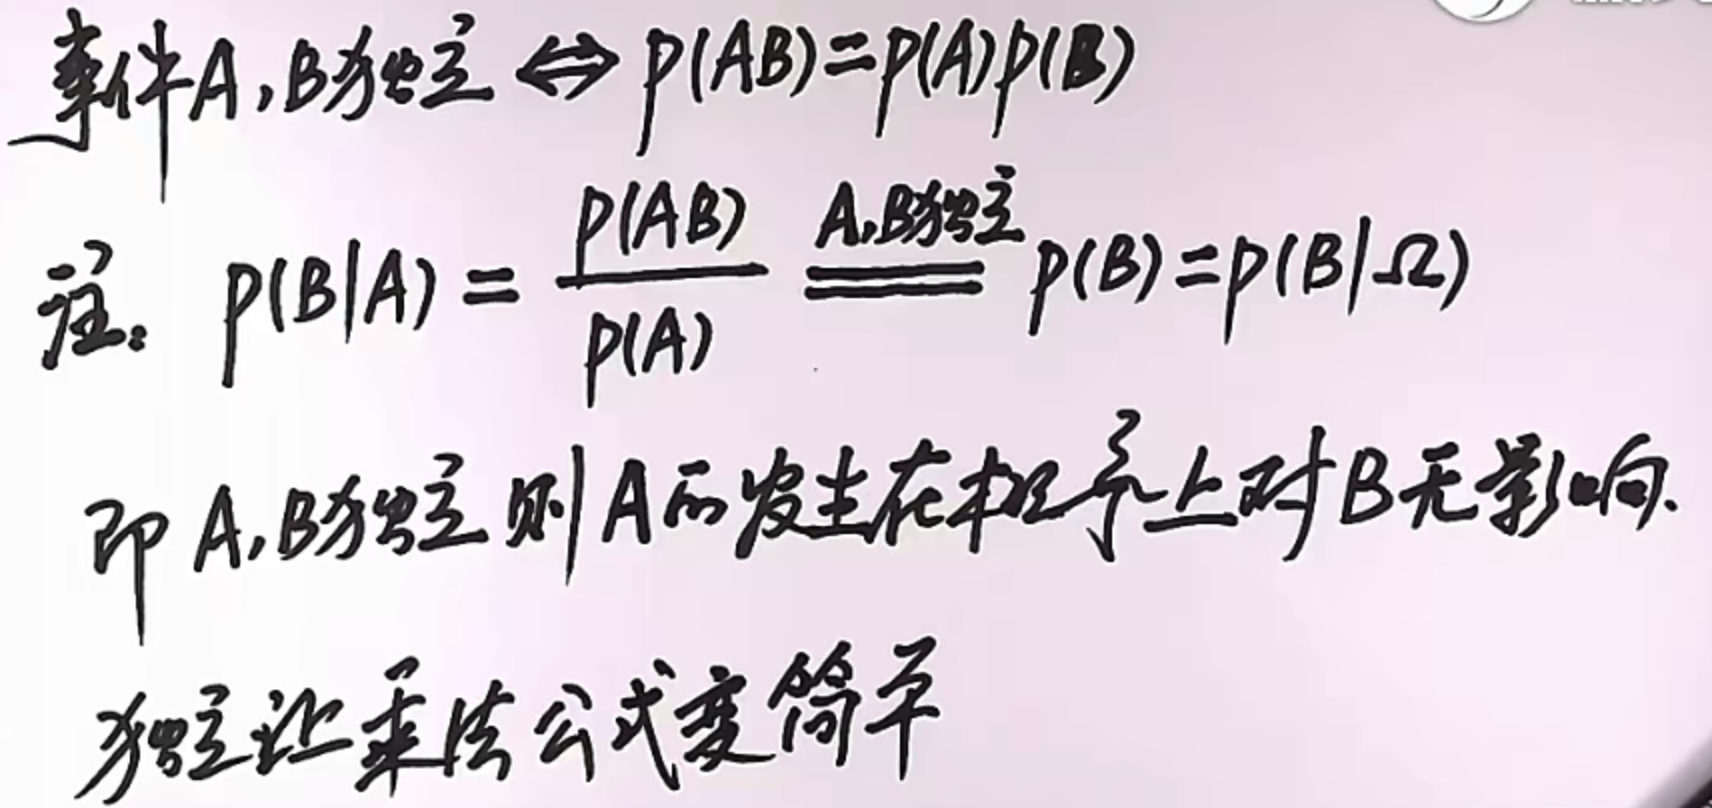 事件A,B独立 ⇔ P(AB)=P(A)P(B)
注: P(B|A) = P(AB)/P(A) A,B独立== P(B)=P(B|Ω)
即 A,B独立 则 A的发生在概率上对B无影响.
独立让乘法公式变简单